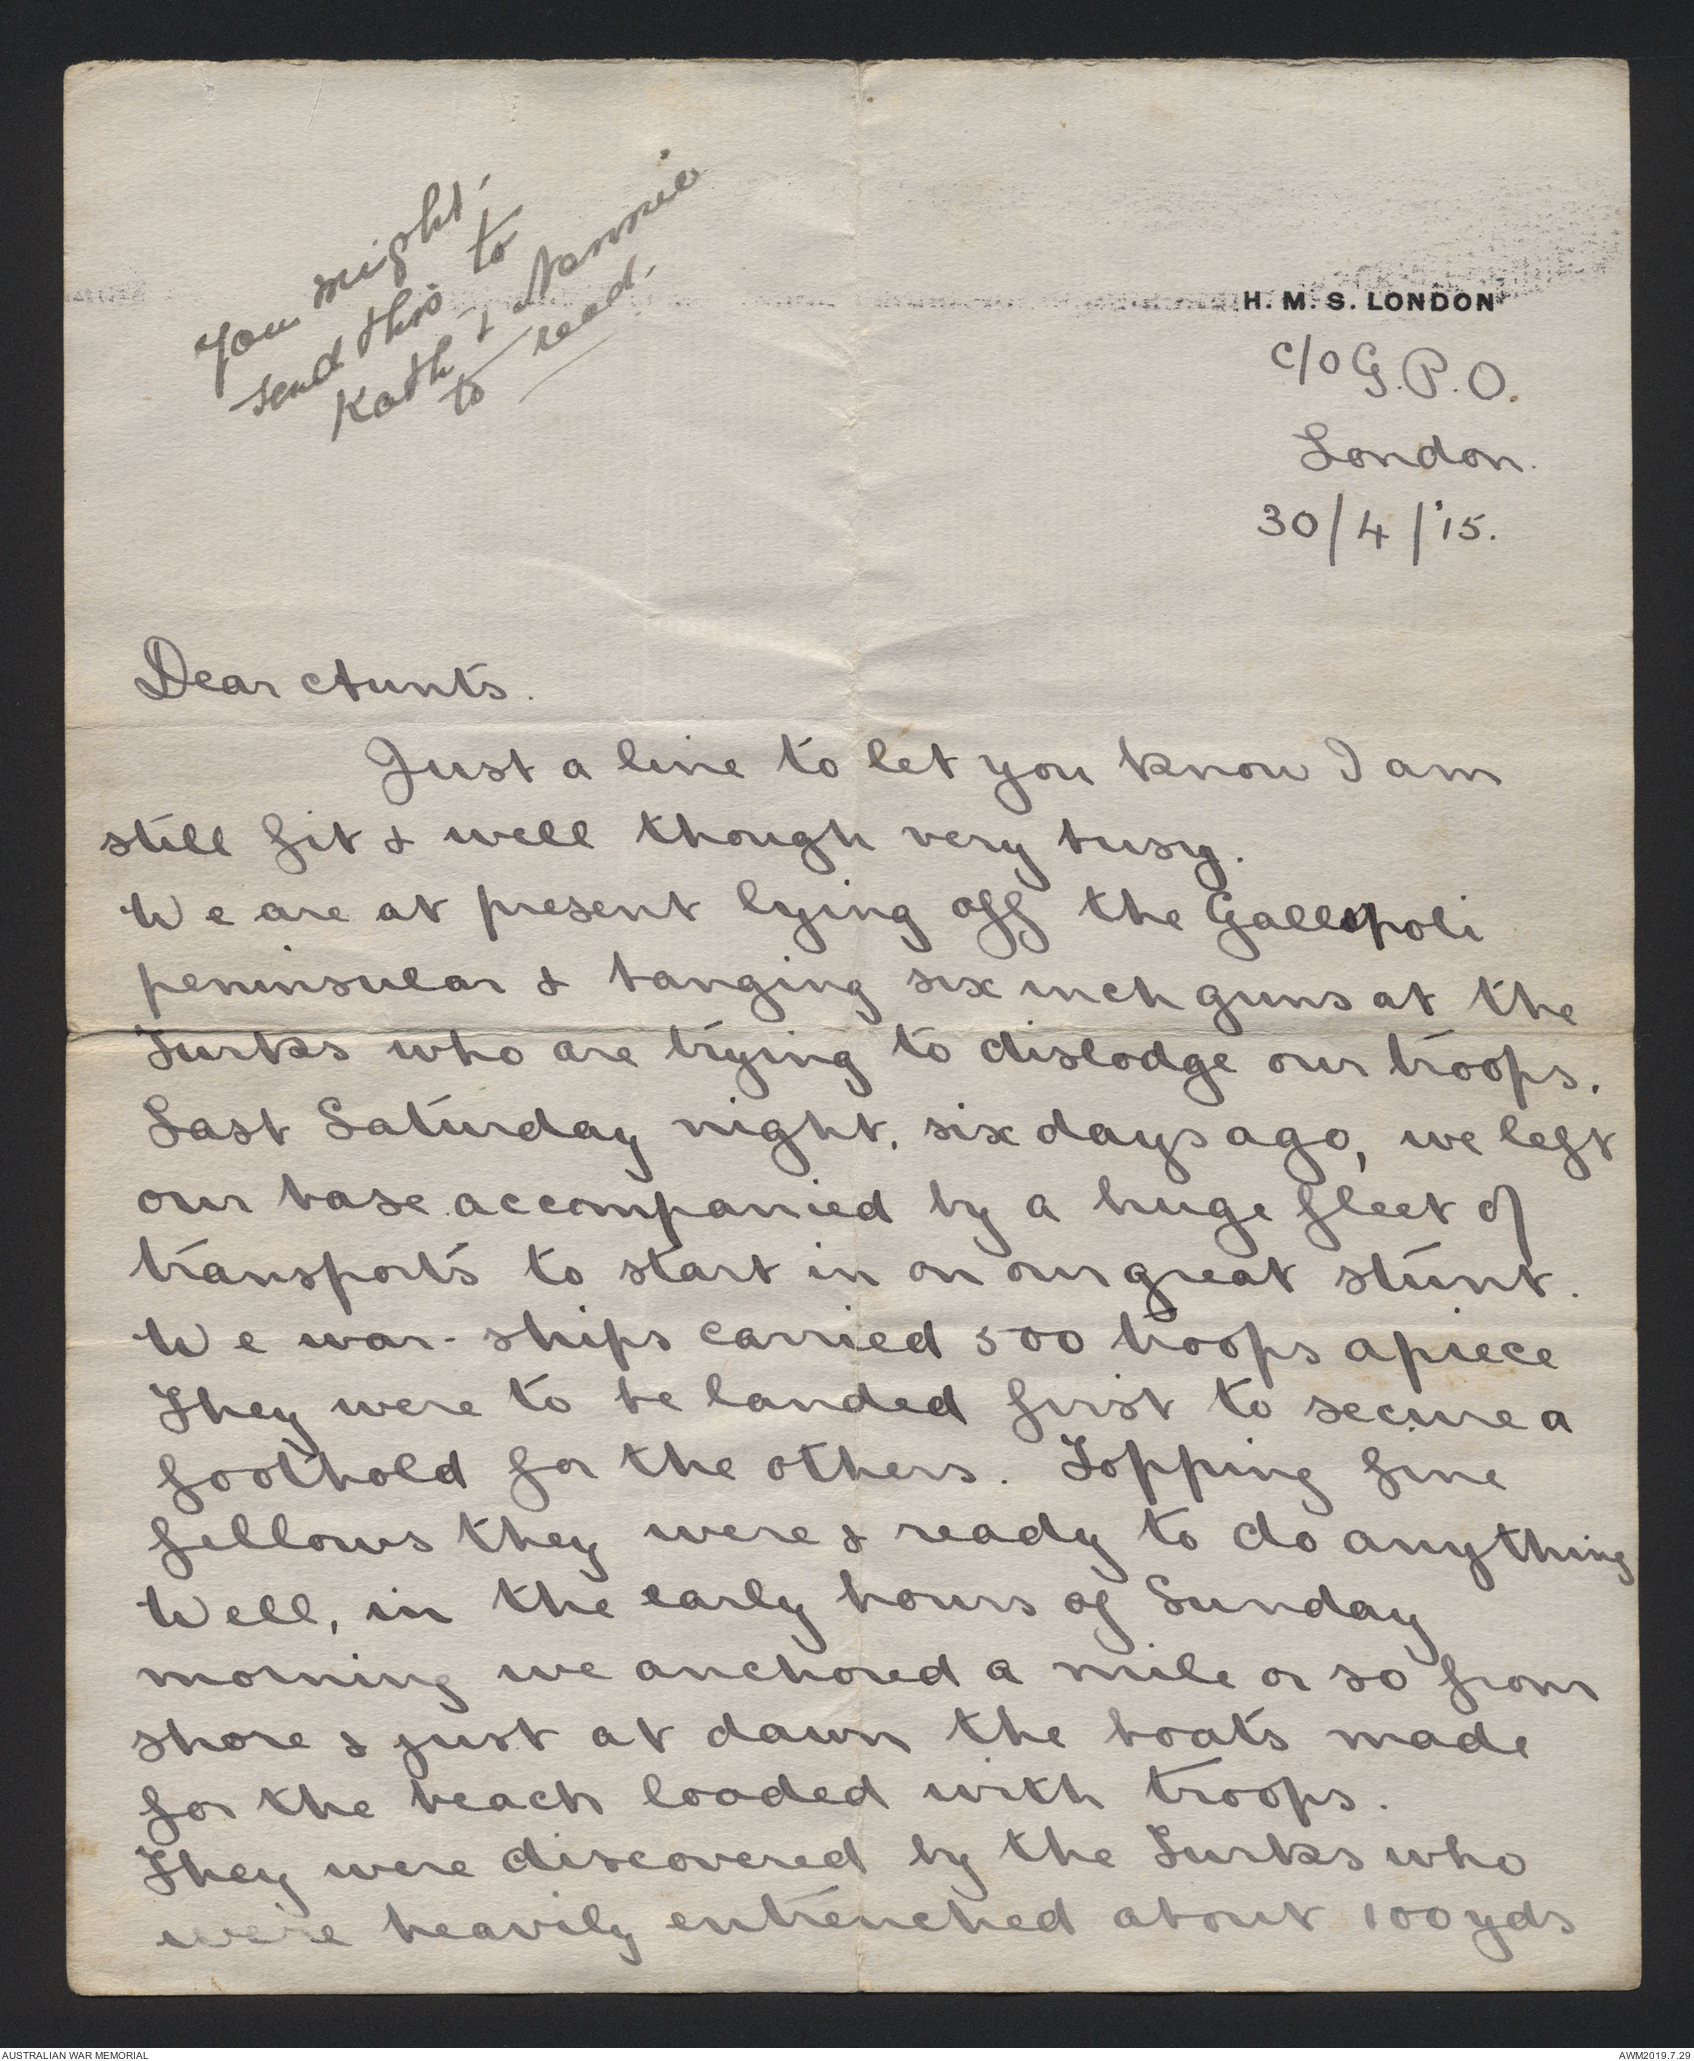 You might
send this to
Kath & Nannie
to read.
H. M. S. LONDON
c/o G.P.O.
London.
30/4/'15.
Dear Aunts.
Just a line to let you know I am
still fit & well though very busy.
We are at present lying off the Gallipoli
peninsular & banging six inch guns at the
Turks who are trying to dislodge our troops.
Last Saturday night, six days ago, we left
our base accompanied by a huge fleet of
transports to start in on our great stunt.
We war-ships carried 500 troops apiece
They were to be landed first to secure a
foothold for the others. Topping fine
fellows they were & ready to do anything
Well, in the early hours of Sunday
morning we anchored a mile or so from
shore & just at dawn the boats made
for the beach loaded with troops.
They were discovered by the Turks who
were heavily entrenched about 100 yds
AUSTRALIAN WAR MEMORIAL
AWM2019.7.29